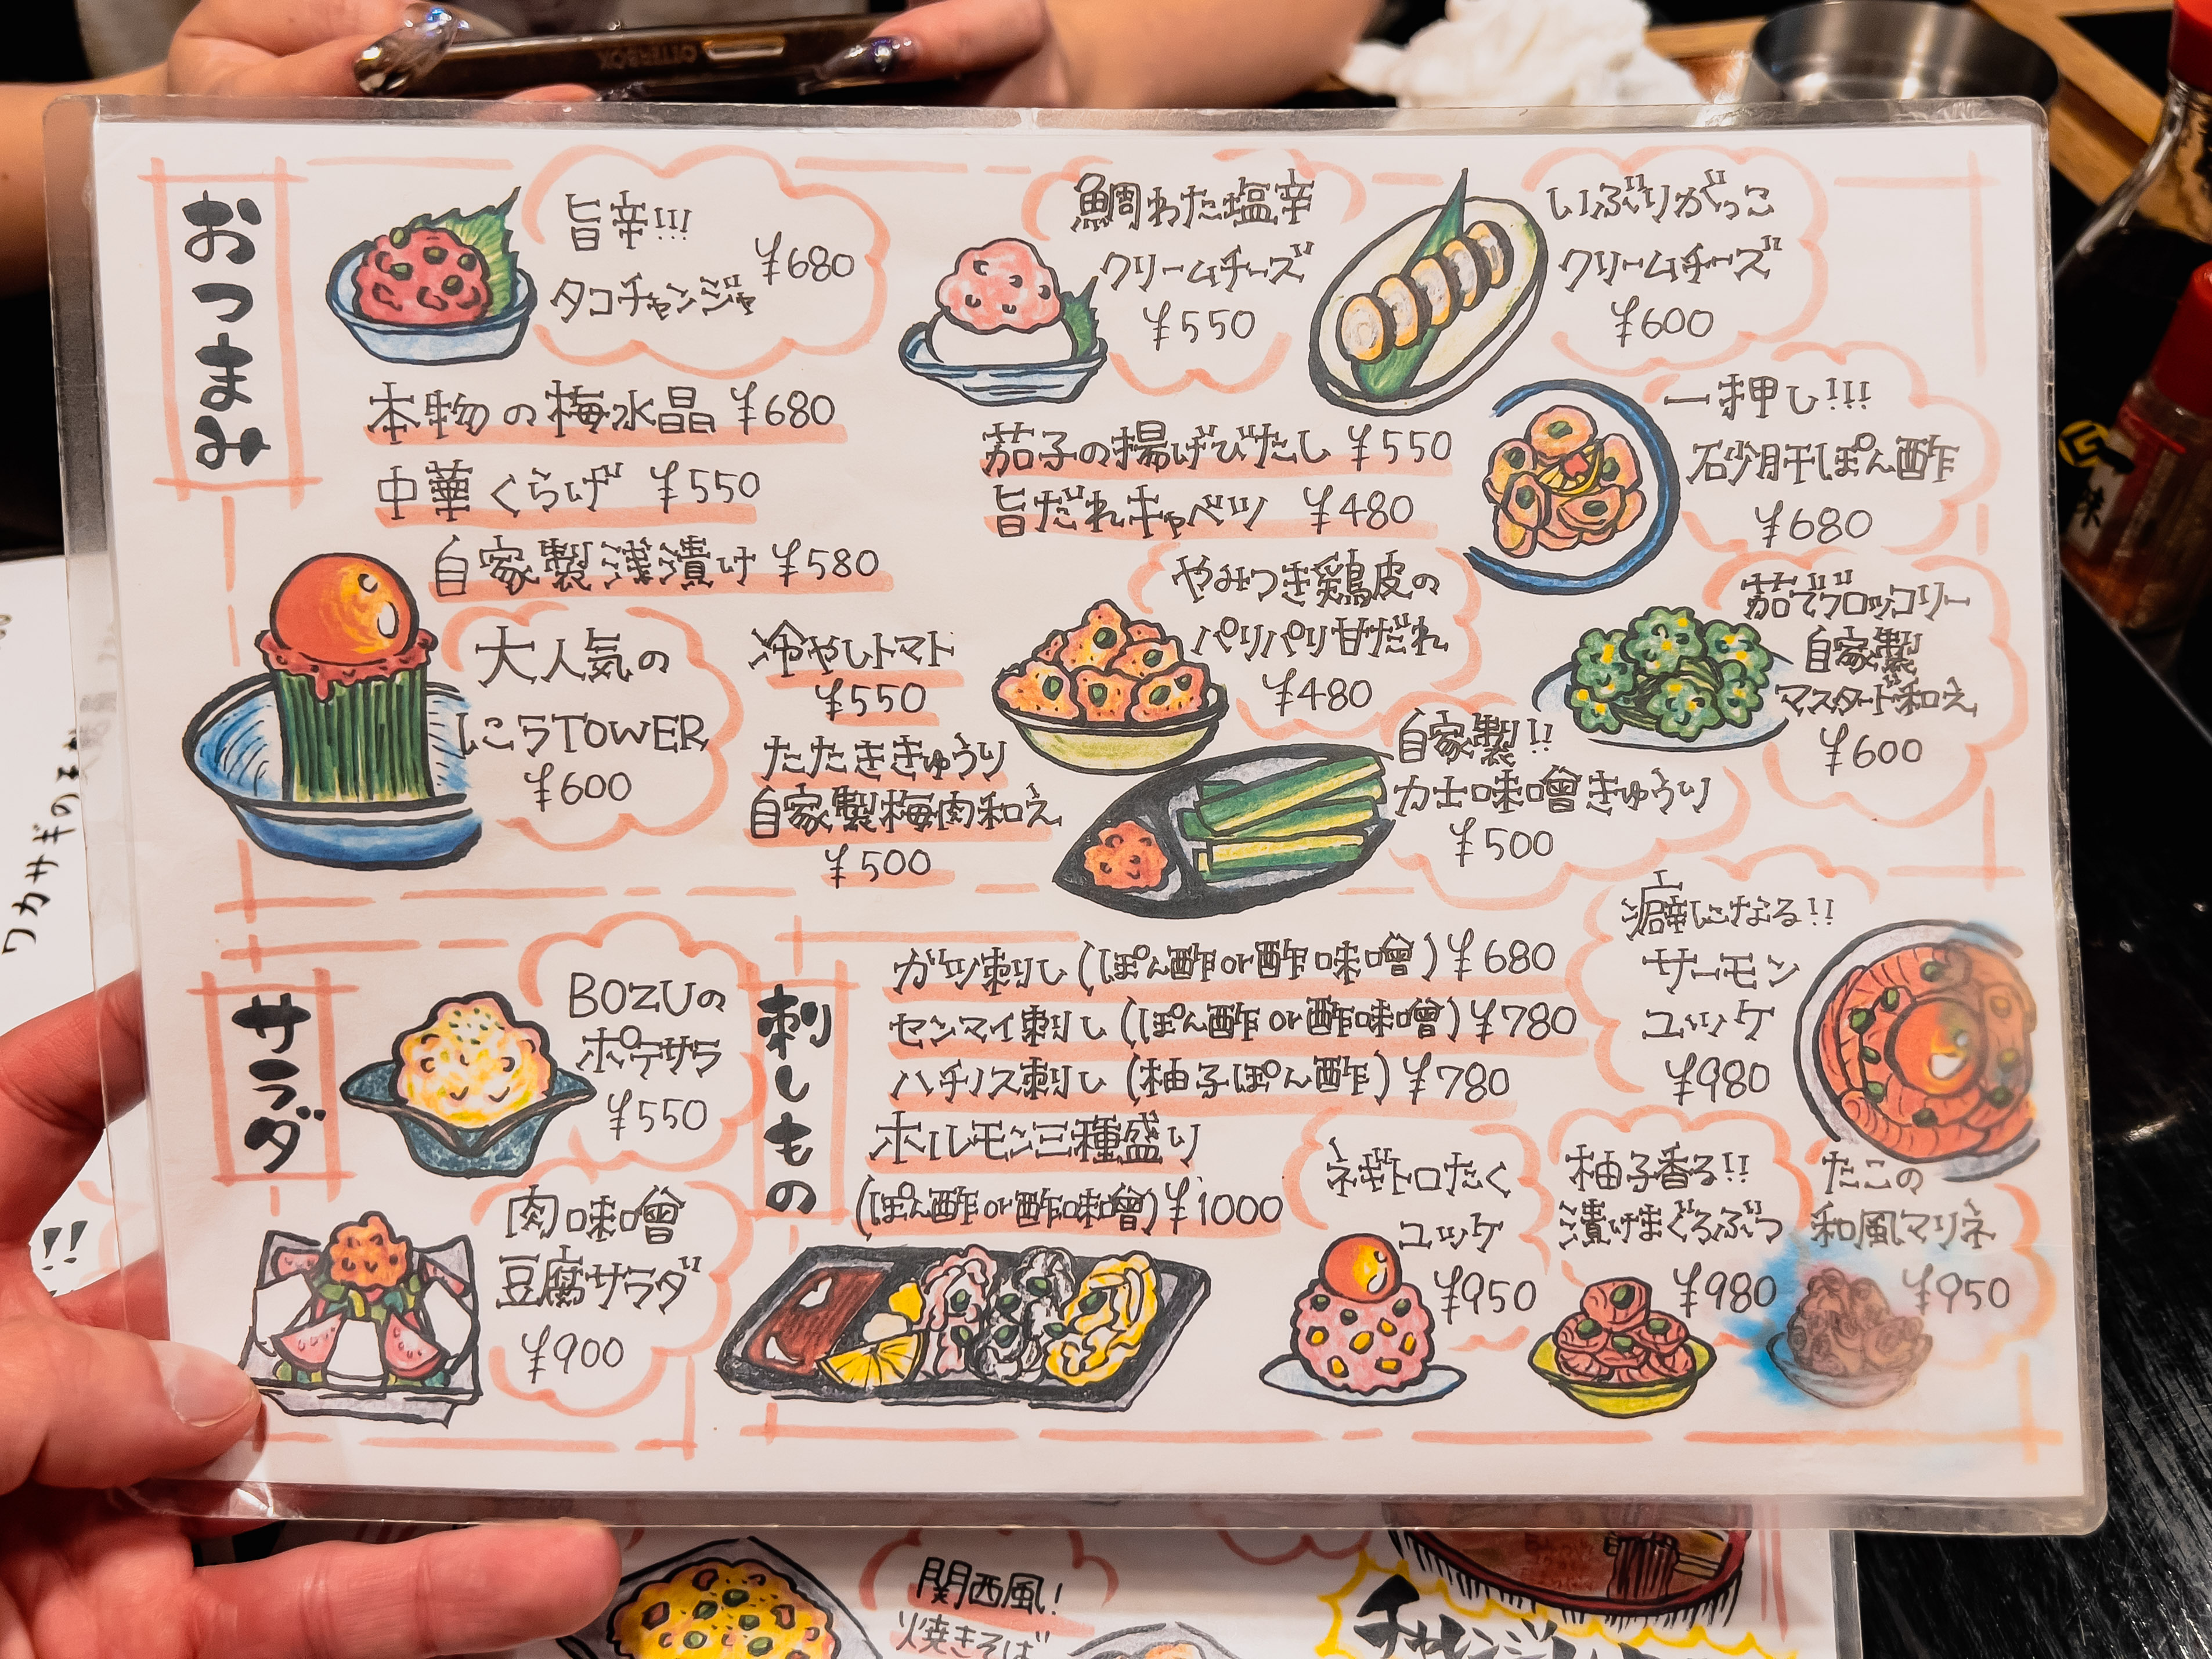 OTTERBOX
おつまみ
旨辛!!!
タコチャンジャ
¥680
鯛わた塩辛
クリームチーズ
¥550
いぶりがっこ
クリームチーズ
¥600
本物の梅水晶 ¥680
中華くらげ ¥550
自家製浅漬け ¥580
茄子の揚げびたし ¥550
旨だれキャベツ ¥480
一押し!!!
砂肝ぽん酢
¥680
大人気の
にらTOWER
¥600
冷やしトマト
¥550
たたききゅうり
自家製梅肉和え
¥500
やみつき鶏皮の
パリパリ甘だれ
¥480
茹でブロッコリー
自家製
マスタード和え
¥600
自家製!!
力士味噌きゅうり
¥500
サラダ
BOZUの
ポテサラ
¥550
肉味噌
豆腐サラダ
¥900
刺しもの
ガツ刺し(ぽん酢or酢味噌)¥680
センマイ刺し(ぽん酢or酢味噌)¥780
ハチノス刺し(柚子ぽん酢)¥780
ホルモン三種盛り
(ぽん酢or酢味噌)¥1000
癖になる!!
サーモン
ユッケ
¥980
ネギトロたく
ユッケ
¥950
柚子香る!!
漬けまぐろぶつ
¥980
たこの
和風マリネ
¥950
ワカサギの
!!
関西風!
焼きそば
チャレンジ
味